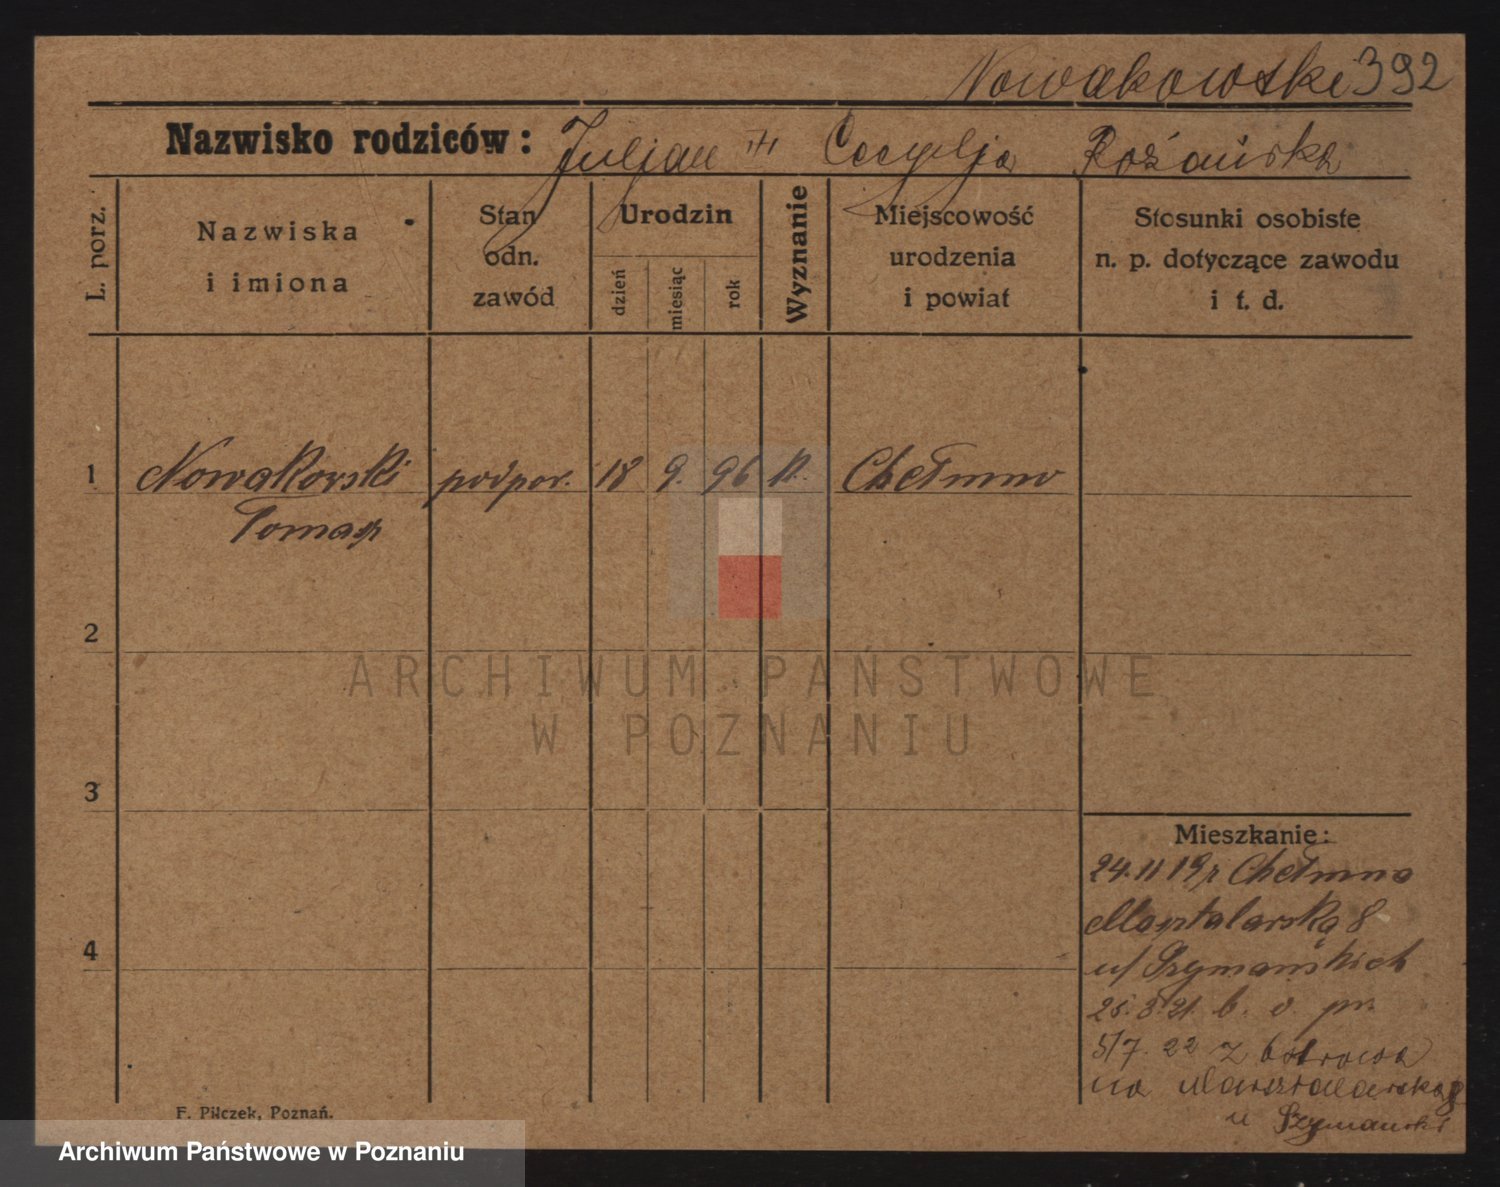 Nowakowski 392
Nazwisko rodziców: Juljan Cecylja Rożańska
L. porz.
Nazwiska
i imiona
Stan
odn.
zawód
Urodzin
dzień
miesiąc
rok
Wyznanie
Miejscowość
urodzenia
i powiat
Stosunki osobiste
n. p. dotyczące zawodu
i t. d.
1 Nowakowski podpor. 18 9. 96 k. Chełmno
Tomasz
2
ARCHIWUM PAŃSTWOWE
W POZNANIU
3
Mieszkanie:
24.11 19r Chełmno
u/ Szymańskich
4
25.3.21. b. o. pr.
5/7. 22 z Ostrowa
na Marsztalarską 8
u Szymański
F. Pilczek, Poznań.
Archiwum Państwowe w Poznaniu